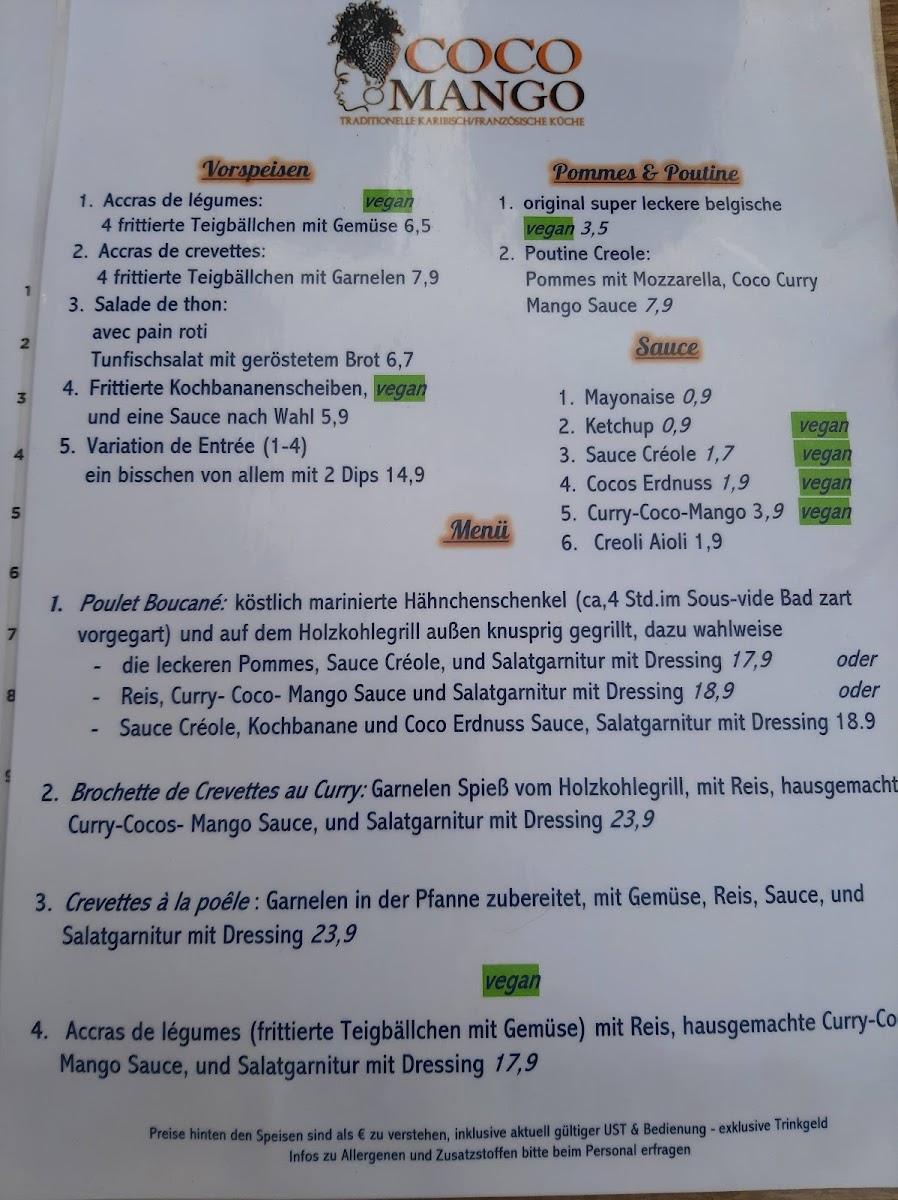 COCO
MANGO
TRADITIONELLE KARIBISCH/FRANZÖSISCHE KÜCHE
Vorspeisen
1. Accras de légumes: vegan
4 frittierte Teigbällchen mit Gemüse 6,5
2. Accras de crevettes:
4 frittierte Teigbällchen mit Garnelen 7,9
3. Salade de thon:
avec pain roti
Tunfischsalat mit geröstetem Brot 6,7
4. Frittierte Kochbananenscheiben, vegan
und eine Sauce nach Wahl 5,9
5. Variation de Entrée (1-4)
ein bisschen von allem mit 2 Dips 14,9
Pommes & Poutine
1. original super leckere belgische
vegan 3,5
2. Poutine Creole:
Pommes mit Mozzarella, Coco Curry
Mango Sauce 7,9
Sauce
1. Mayonaise 0,9
2. Ketchup 0,9 vegan
3. Sauce Créole 1,7 vegan
4. Cocos Erdnuss 1,9 vegan
5. Curry-Coco-Mango 3,9 vegan
6. Creoli Aioli 1,9
Menü
1. Poulet Boucané: köstlich marinierte Hähnchenschenkel (ca,4 Std.im Sous-vide Bad zart
vorgegart) und auf dem Holzkohlegrill außen knusprig gegrillt, dazu wahlweise
- die leckeren Pommes, Sauce Créole, und Salatgarnitur mit Dressing 17,9 oder
- Reis, Curry- Coco- Mango Sauce und Salatgarnitur mit Dressing 18,9 oder
- Sauce Créole, Kochbanane und Coco Erdnuss Sauce, Salatgarnitur mit Dressing 18.9
2. Brochette de Crevettes au Curry: Garnelen Spieß vom Holzkohlegrill, mit Reis, hausgemacht
Curry-Cocos- Mango Sauce, und Salatgarnitur mit Dressing 23,9
3. Crevettes à la poêle : Garnelen in der Pfanne zubereitet, mit Gemüse, Reis, Sauce, und
Salatgarnitur mit Dressing 23,9
vegan
4. Accras de légumes (frittierte Teigbällchen mit Gemüse) mit Reis, hausgemachte Curry-Co
Mango Sauce, und Salatgarnitur mit Dressing 17,9
Preise hinten den Speisen sind als € zu verstehen, inklusive aktuell gültiger UST & Bedienung - exklusive Trinkgeld
Infos zu Allergenen und Zusatzstoffen bitte beim Personal erfragen
1
2
3
4
5
6
7
8